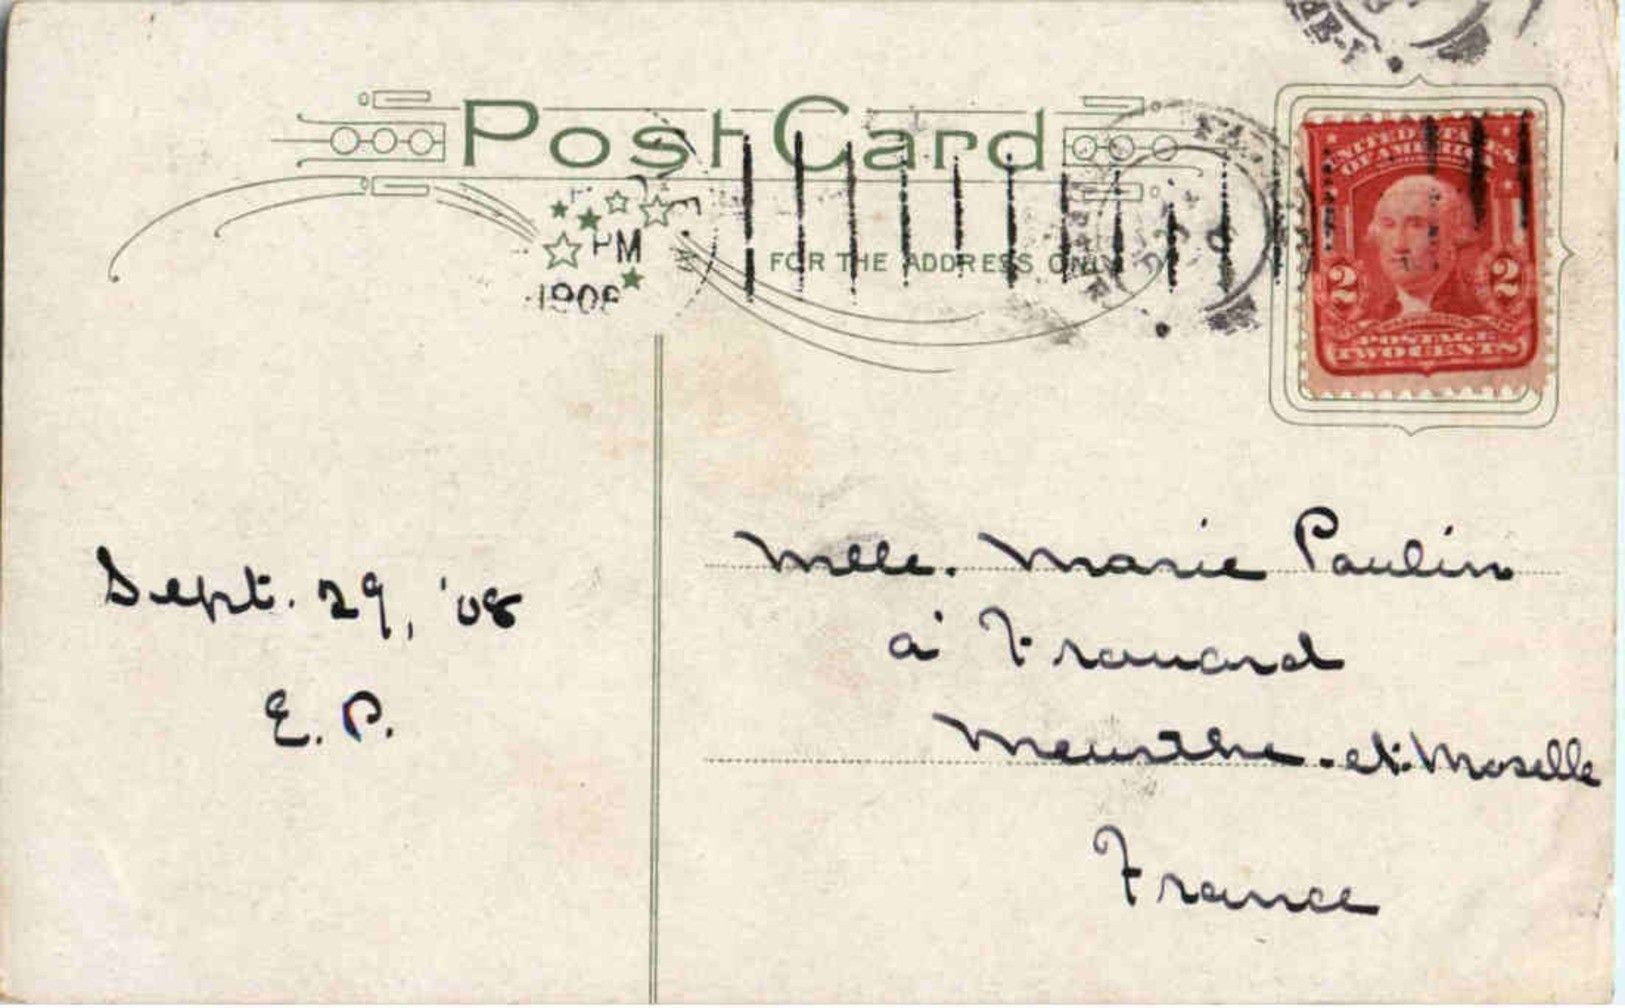 Post Card
PM
FOR THE ADDRESS ONLY
UNITED STATES
OF AMERICA
2 2
POSTAGE
TWO CENTS
Mlle. Marie Paulin
à Frouard
Sept. 29, '08
E. P.
Meurthe-et-Moselle
France